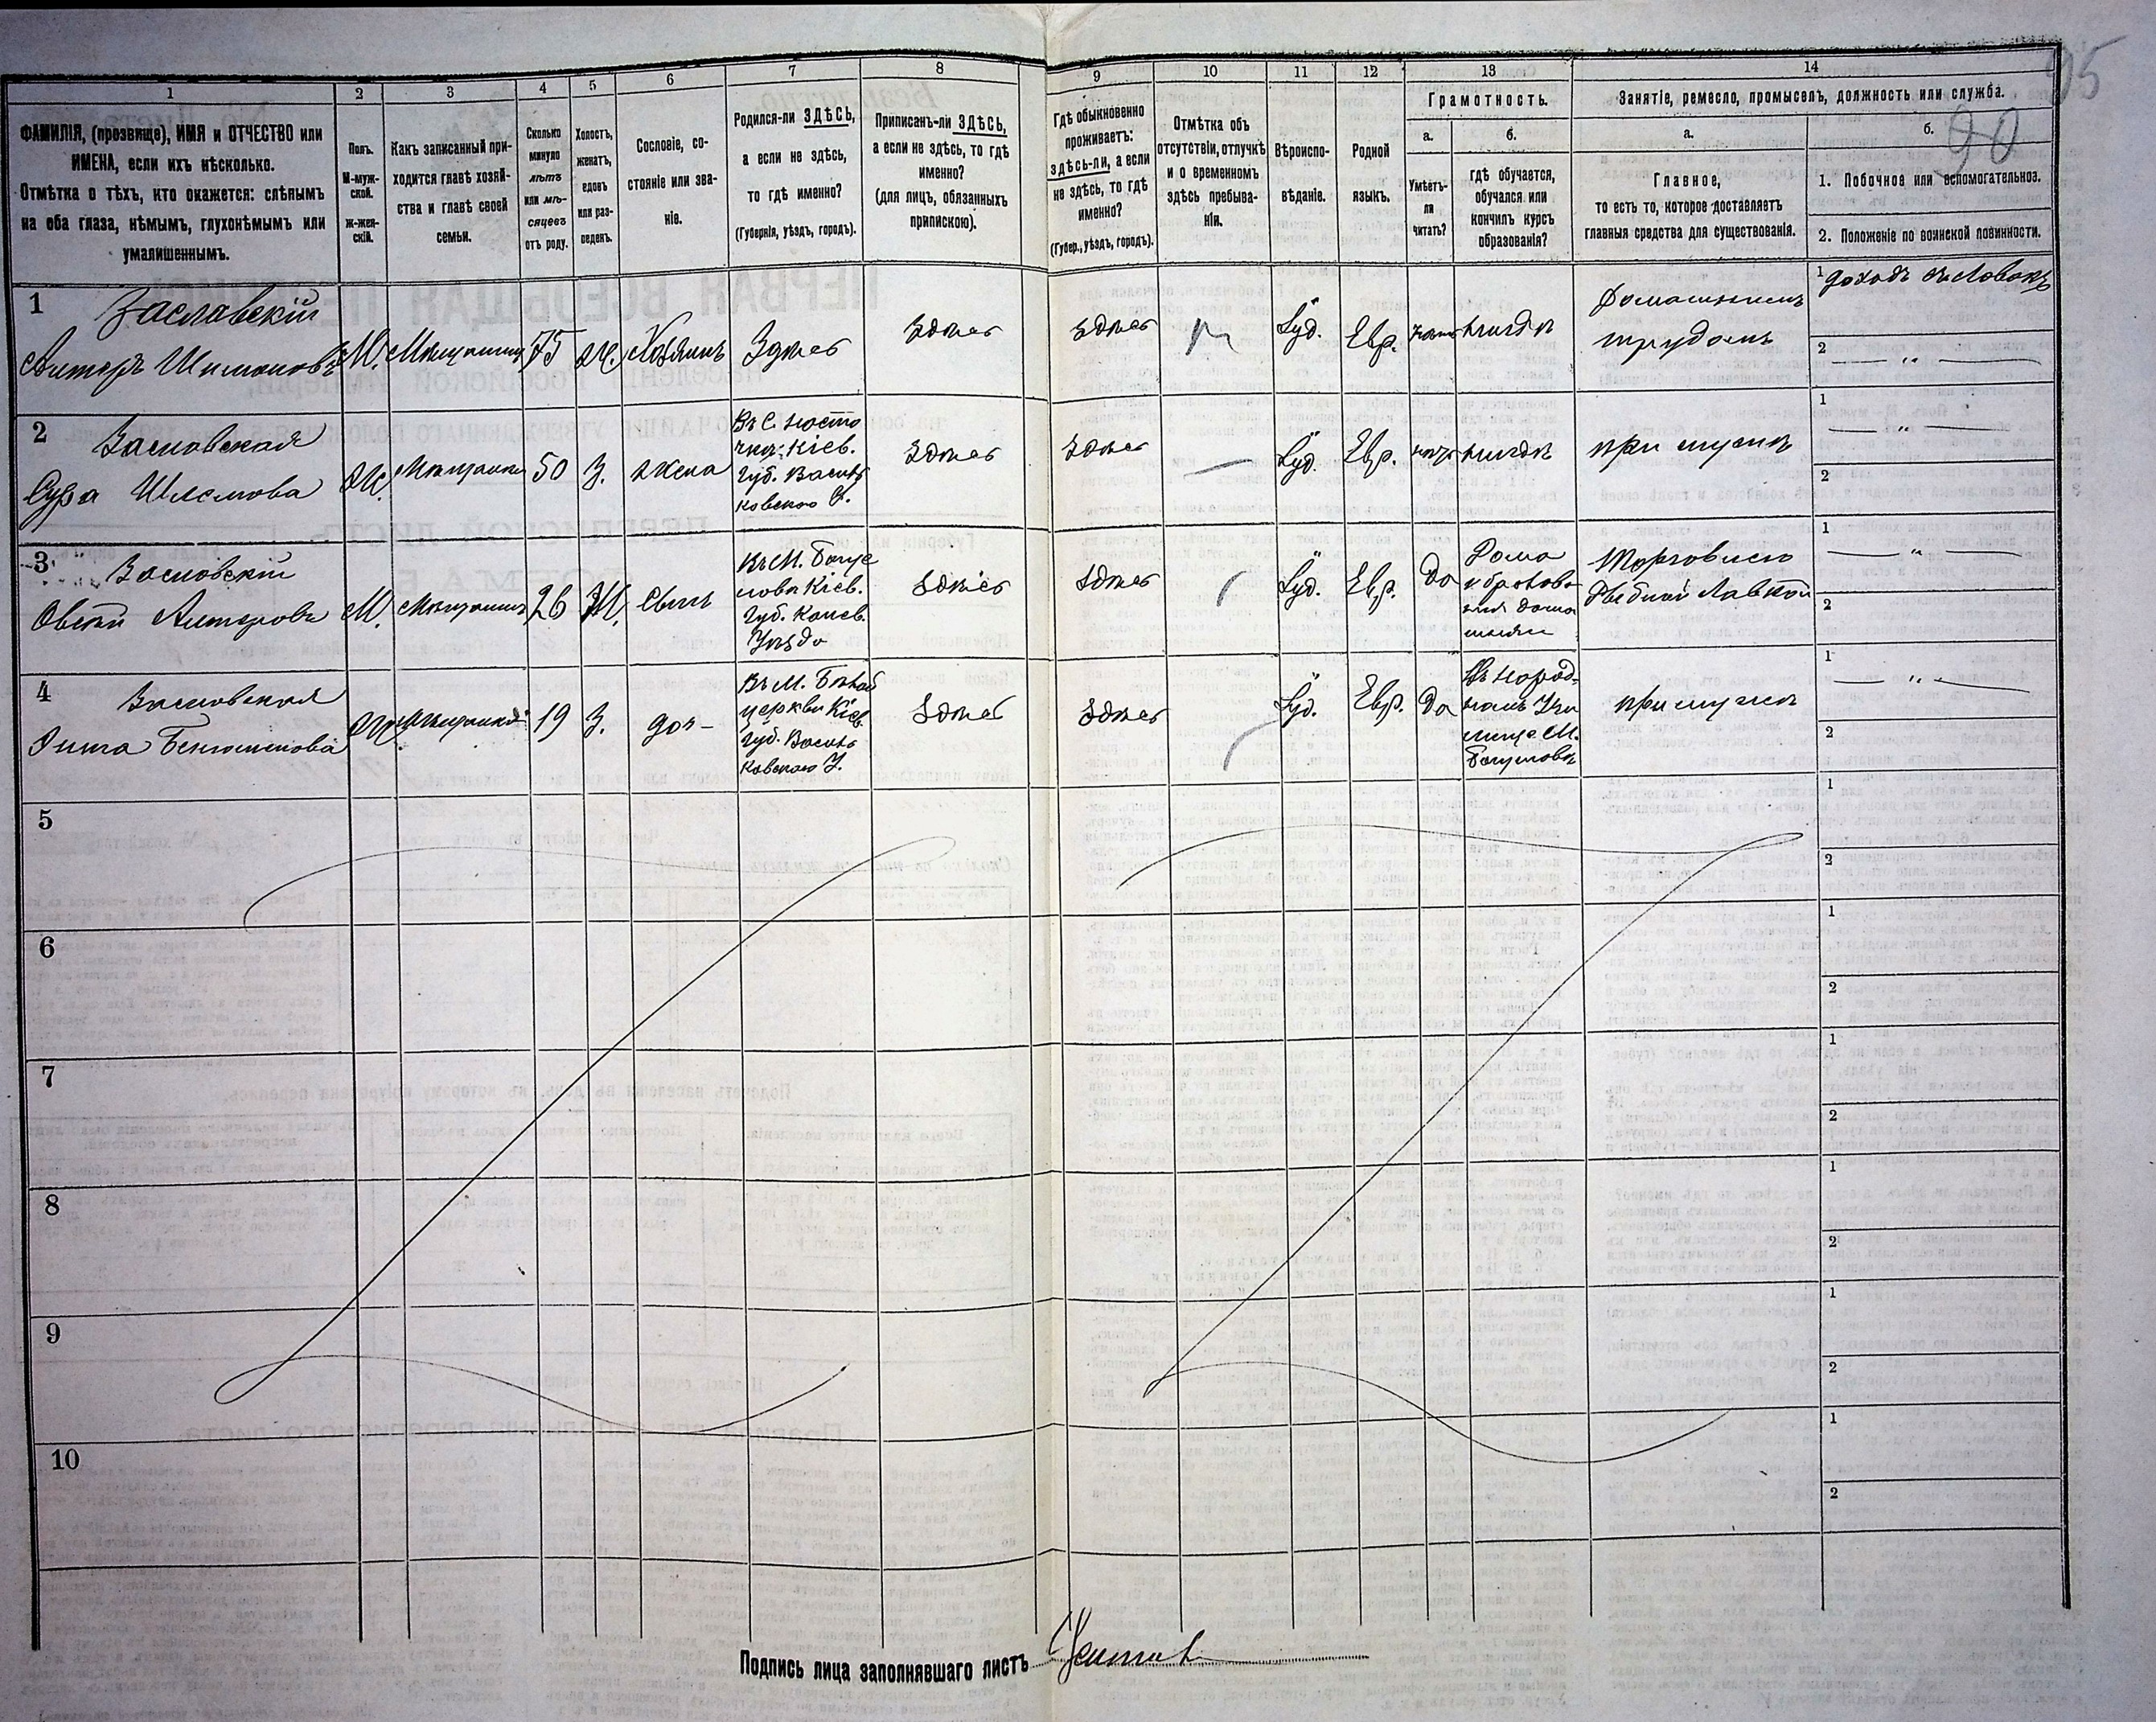 95
90
1
2
3
4
5
6
7
8
9
10
11
12
13
14
ФАМИЛІЯ, (прозвище), ИМЯ и ОТЧЕСТВО или
ИМЕНА, если ихъ нѣсколько.
Отмѣтка о тѣхъ, кто окажется: слѣпымъ
на оба глаза, нѣмымъ, глухонѣмымъ или
умалишеннымъ.
Полъ.
М-муж-
ской.
ж-жен-
скій.
Какъ записанный при-
ходится главѣ хозяй-
ства и главѣ своей
семьи.
Сколько
минуло
лѣтъ
или мѣ-
сяцевъ
отъ роду.
Холостъ,
женатъ,
вдовъ
или раз-
веденъ.
Сословіе, со-
стояніе или зва-
ніе.
Родился-ли ЗДѢСЬ,
а если не здѣсь,
то гдѣ именно?
(Губернія, уѣздъ, городъ).
Приписанъ-ли ЗДѢСЬ,
а если не здѣсь, то гдѣ
именно?
(для лицъ, обязанныхъ
припискою).
Гдѣ обыкновенно
проживаетъ:
здѣсь-ли, а если
не здѣсь, то гдѣ
именно?
(Губер., уѣздъ, городъ).
Отмѣтка объ
отсутствіи, отлучкѣ
и о временномъ
здѣсь пребыва-
ніи.
Вѣроиспо-
вѣданіе.
Родной
языкъ.
Грамотность.
а.
Умѣетъ-
ли
читать?
б.
гдѣ обучается,
обучался или
кончилъ курсъ
образованія?
Занятіе, ремесло, промыселъ, должность или служба.
а.
Главное,
то есть то, которое доставляетъ
главныя средства для существованія.
б.
1. Побочное или вспомогательное.
2. Положеніе по воинской повинности.
1
Заславскій
Алтеръ Шимоновъ
М.
Мѣщанинъ
75
Ж.
Хозяинъ
Здѣсь
Здѣсь
Здѣсь
Іуд.
Евр.
нигдѣ
Домашнимъ
трудомъ
1 доходъ съ лавокъ
2 — „ —
2
Заславская
Сура Шлемова
Ж.
Мѣщанка
50
З.
жена
Кіев.
Губ. Василь
ковского У.
Здѣсь
Здѣсь
Іуд.
Евр.
нѣтъ
нигдѣ
при мужѣ
1 — „ —
2
3
Заславскій
Овсѣй Алтеровъ
М.
Мѣщанинъ
26
Ж.
Сынъ
Въ М. Богус
лавѣ Кіев.
Губ. Канев.
Уѣзда
Здѣсь
Здѣсь
Іуд.
Евр.
да
Дома
образова
нія дома
шняго
Торговлею
лавкой
1 — „ —
2
4
Заславская
Беньяминова
Ж.
Мѣщанка
19
З.
доч-
Въ М. Бѣлой
церкви Кіев.
Губ. Василь
ковского У.
Здѣсь
Здѣсь
Іуд.
Евр.
да
Въ народ-
номъ Учи
лищѣ М.
Богуславѣ
при мужѣ
1 — „ —
2
5
1
2
6
1
2
7
1
2
8
1
2
9
1
2
10
1
2
Подпись лица заполнявшаго листъ